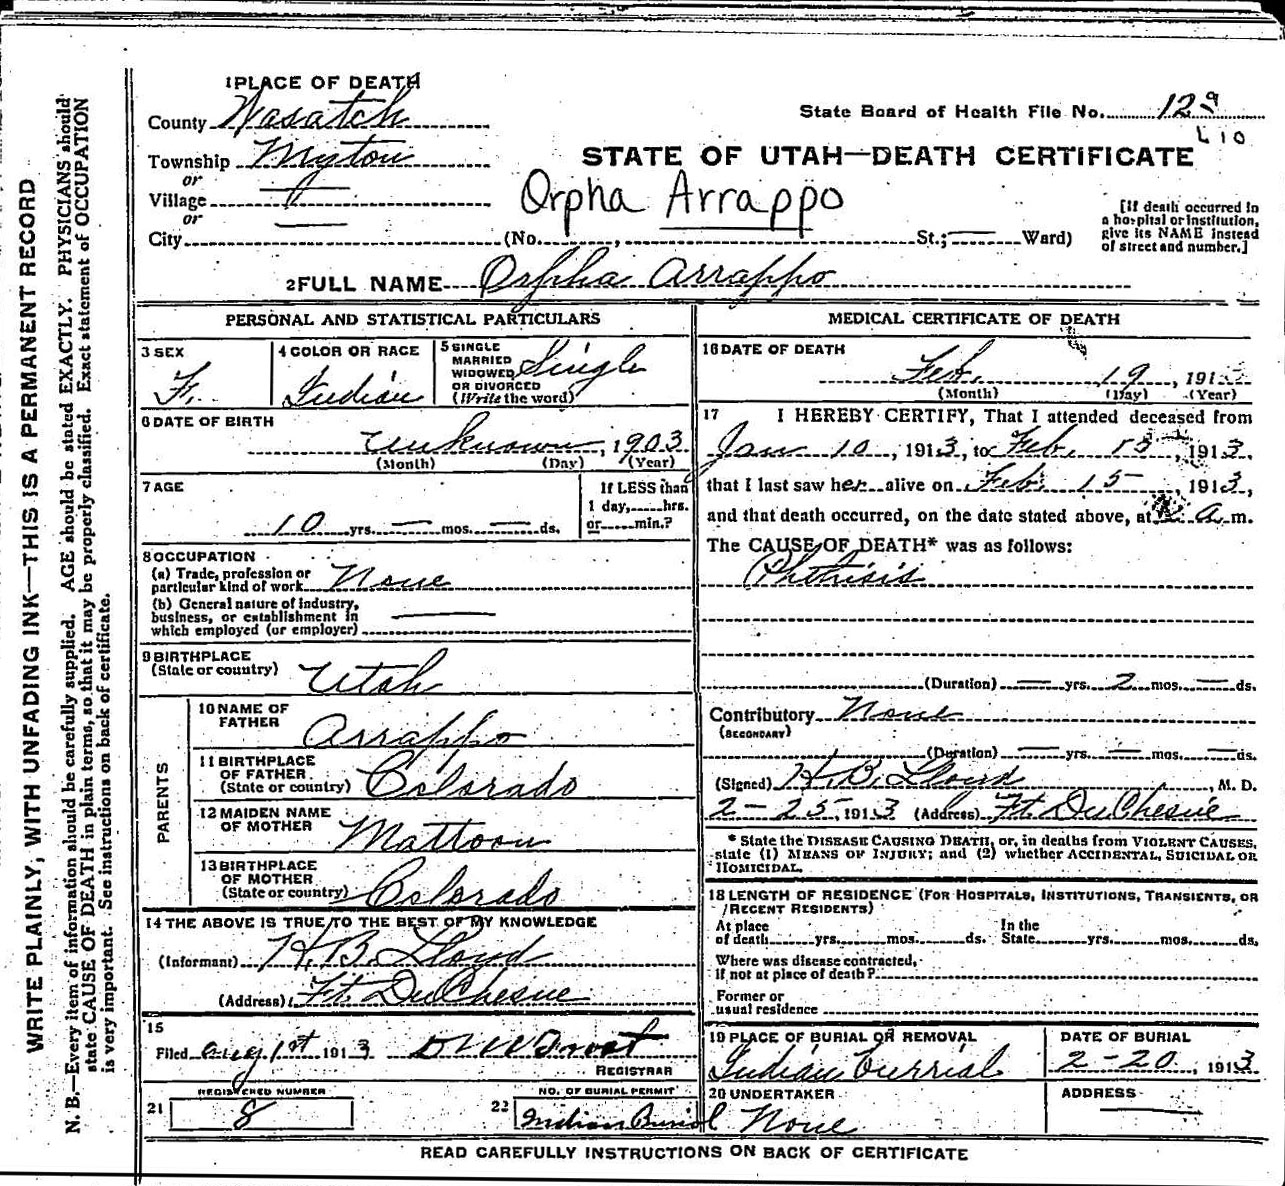 1 PLACE OF DEATH
County Wasatch
Township Myton
or
Village
or
City
(No. , St.; Ward)
State Board of Health File No. 129
L10
STATE OF UTAH—DEATH CERTIFICATE
Orpha Arrappo
[If death occurred in
a hospital or institution,
give its NAME instead
of street and number.]
2 FULL NAME Orpha Arrappo
WRITE PLAINLY, WITH UNFADING INK—THIS IS A PERMANENT RECORD
N. B.—Every item of information should be carefully supplied. AGE should be stated EXACTLY. PHYSICIANS should
state CAUSE OF DEATH in plain terms, so that it may be properly classified. Exact statement of OCCUPATION
is very important. See instructions on back of certificate.
PERSONAL AND STATISTICAL PARTICULARS
3 SEX
F.
4 COLOR OR RACE
Indian
5 SINGLE
MARRIED
WIDOWED
OR DIVORCED
(Write the word)
Single
6 DATE OF BIRTH
Unknown, 1903
(Month) (Day) (Year)
7 AGE
10 yrs. — mos. — ds.
If LESS than
1 day, hrs.
or min.?
8 OCCUPATION
(a) Trade, profession or
particular kind of work None
(b) General nature of Industry,
business, or establishment in
which employed (or employer)
9 BIRTHPLACE
(State or country) Utah
PARENTS
10 NAME OF
FATHER Arrappo
11 BIRTHPLACE
OF FATHER
(State or country) Colorado
12 MAIDEN NAME
OF MOTHER Mattoon
13 BIRTHPLACE
OF MOTHER
(State or country) Colorado
14 THE ABOVE IS TRUE TO THE BEST OF MY KNOWLEDGE
(Informant) H. B. Lloyd
(Address) Ft. DuChesne
15
Filed Aug 1st 1913
REGISTRAR
21 REGISTERED NUMBER
8
22 NO. OF BURIAL PERMIT
Indian Burial
MEDICAL CERTIFICATE OF DEATH
16 DATE OF DEATH
Feb. 19, 1913
(Month) (Day) (Year)
17 I HEREBY CERTIFY, That I attended deceased from
Jan 10, 1913, to Feb. 15, 1913,
that I last saw her alive on Feb. 15, 1913,
and that death occurred, on the date stated above, at a m.
The CAUSE OF DEATH* was as follows:
Phthisis
(Duration) — yrs. 2 mos. — ds.
Contributory None
(SECONDARY)
(Duration) — yrs. — mos. — ds.
(Signed) H. B. Lloyd, M. D.
2-25, 1913 (Address) Ft. DuChesne
* State the DISEASE CAUSING DEATH, or, in deaths from VIOLENT CAUSES,
state (1) MEANS OF INJURY; and (2) whether ACCIDENTAL, SUICIDAL OR
HOMICIDAL.
18 LENGTH OF RESIDENCE (FOR HOSPITALS, INSTITUTIONS, TRANSIENTS, OR
RECENT RESIDENTS)
At place
of death yrs. mos. ds.
In the
State yrs. mos. ds.
Where was disease contracted,
if not at place of death?
Former or
usual residence
19 PLACE OF BURIAL OR REMOVAL
Indian Burrial
DATE OF BURIAL
2-20, 1913
20 UNDERTAKER
None
ADDRESS
READ CAREFULLY INSTRUCTIONS ON BACK OF CERTIFICATE